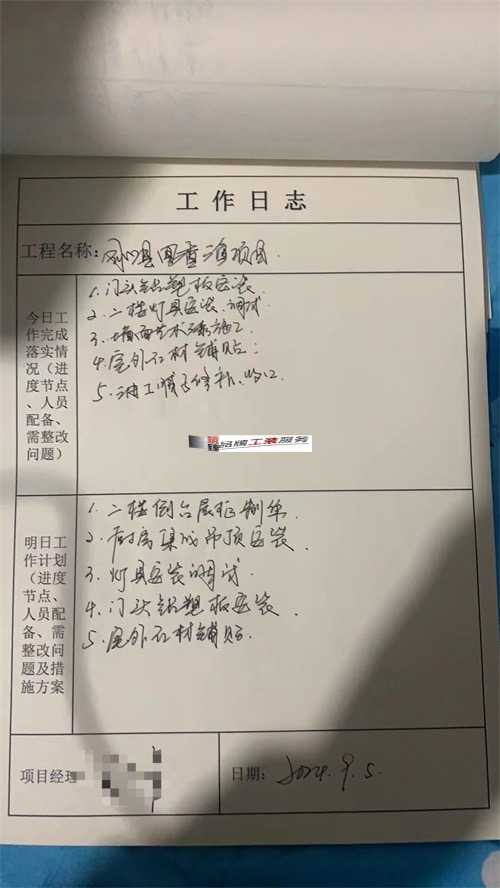 工作日志
工程名称：
今日工作完成落实情况（进度节点、人员配备、需整改问题）
1. 门头铝塑板安装
2. 二楼灯具安装、调试
3. 墙面艺术漆施工
4. 屋外石材铺贴
5. 油工顺色修补、收口
筑锋品牌工装服务
明日工作计划（进度节点、人员配备、需整改问题及措施方案
1. 二楼
2. 厨房集成吊顶安装
3. 灯具安装调试
4. 门头铝塑板安装
5. 屋外石材铺贴
项目经理
日期：2024.9.5.